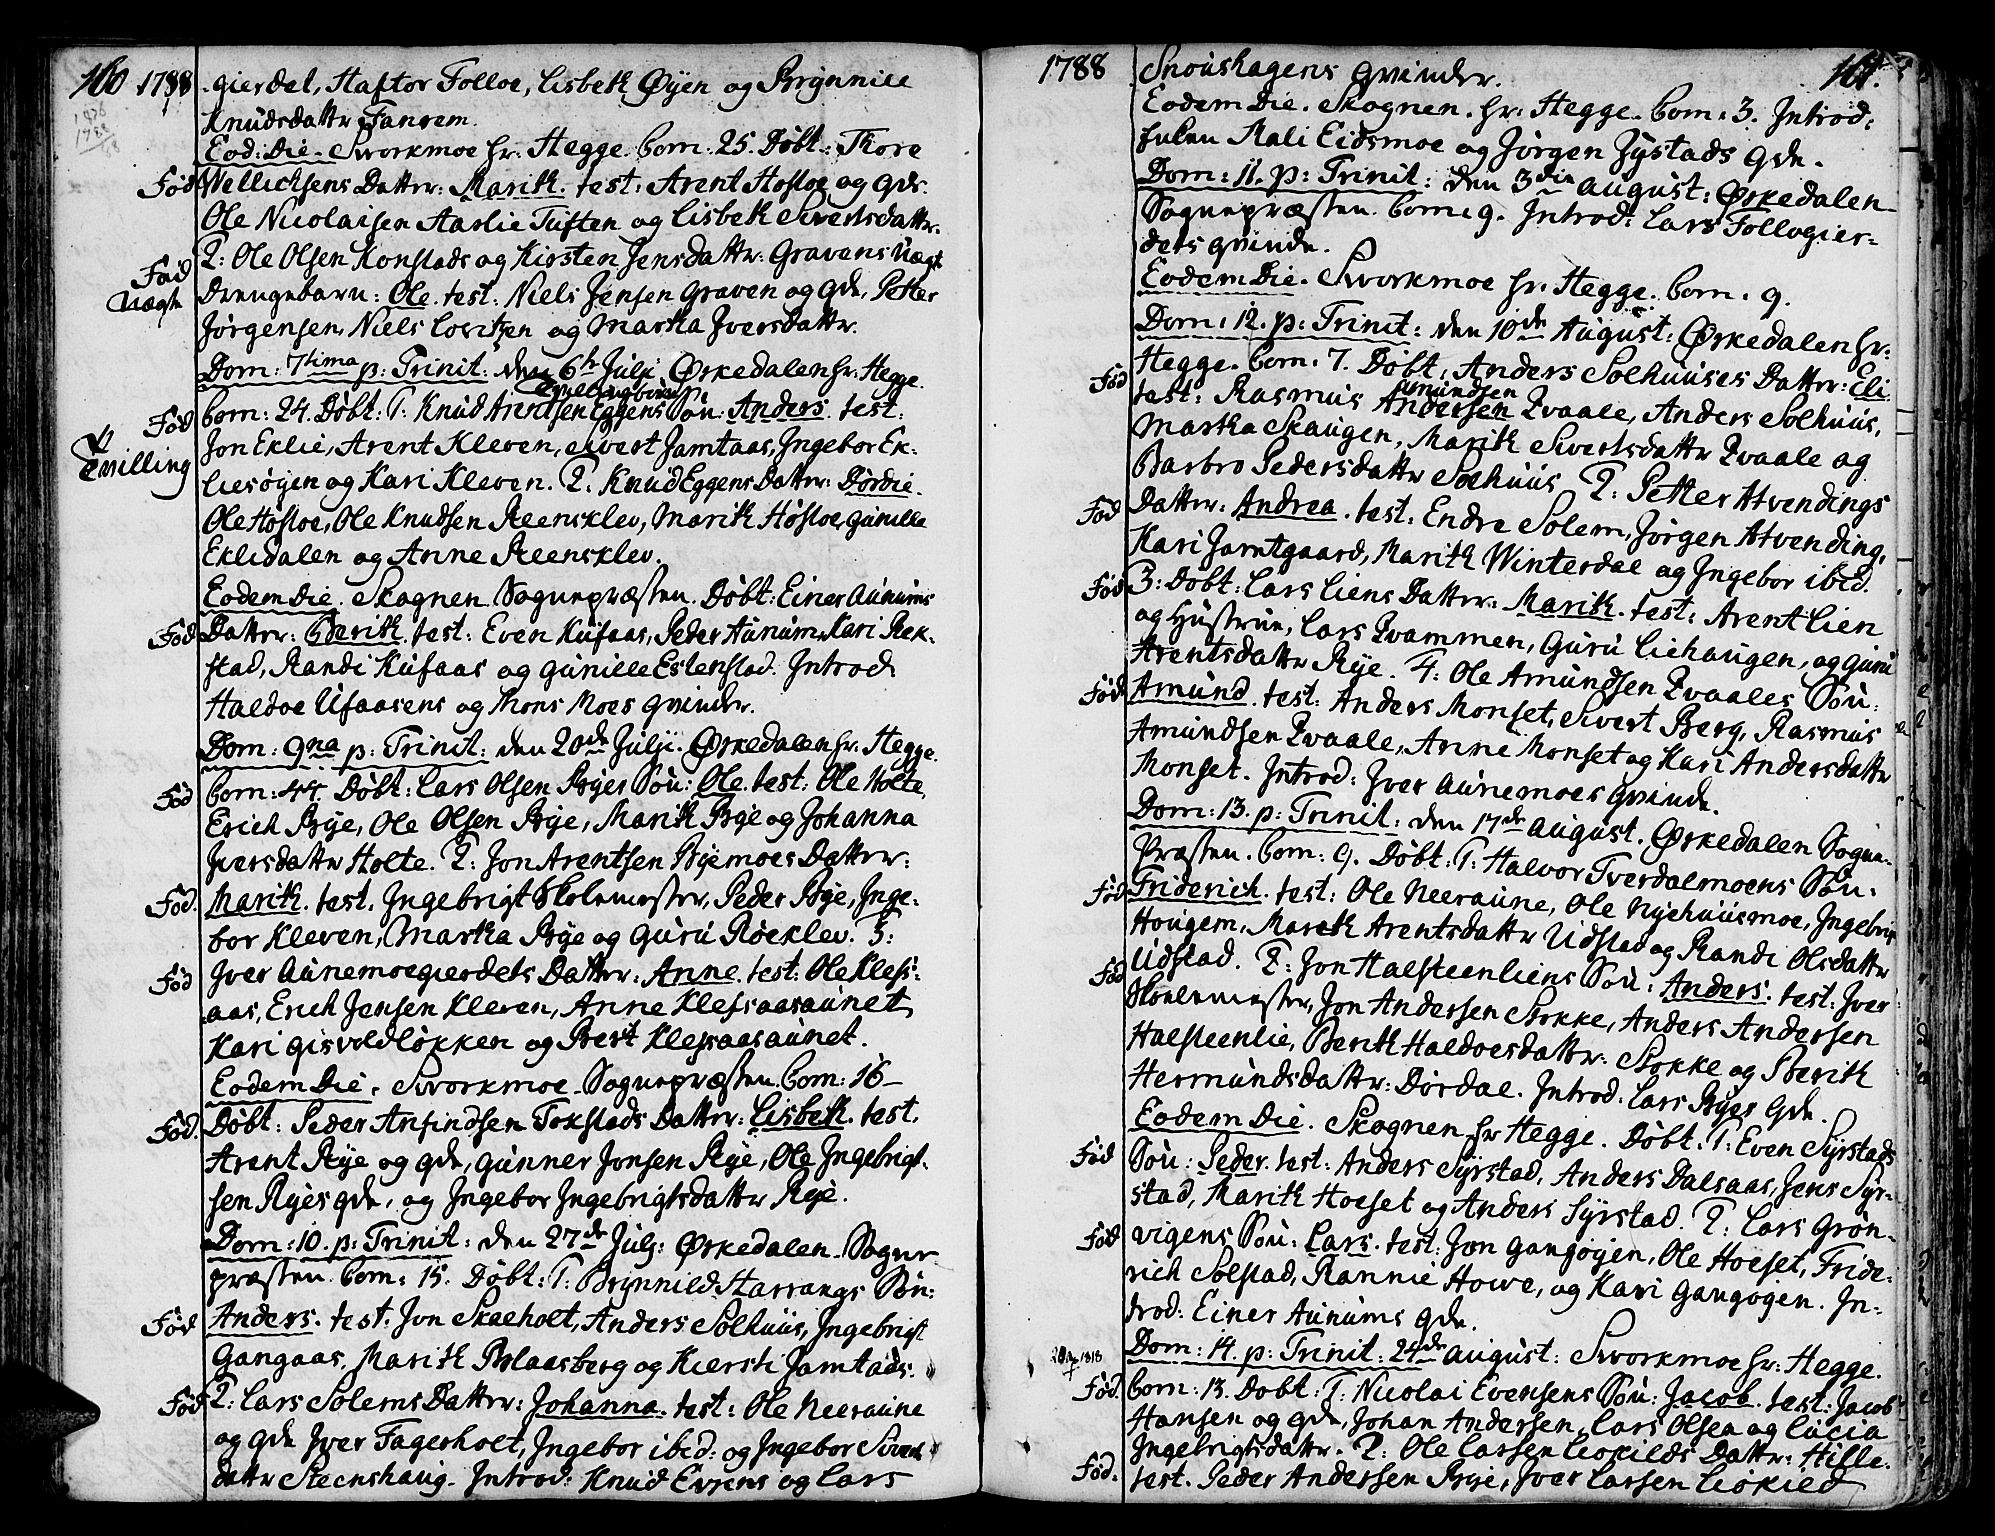 160 1788 gierdet, Haftor Folloe, Lisbeth Øyen og Brynnild
Knudsdattr Fansem.
Eod: Die. Sworkmoe hr: Hegge. Com: 25. Døbt: Thore
Fød Wellichsens Datter: Marith. test: Arent Hosloe og gde.
Ole Nicolaisen Aarlie Tuften og Lisbeth Sivertsdattr.
Fød 2: Ole Olsen Konstads og Kirsten Jensdattr: Gravens Uægt
Uægte Drengebarn: Ole. test: Niels Jensen Graven og gde, Petter
Jørgensen, Niels Loritzen og Martha Iversdattr.
Dom: 7tima p: Trinit: den 6te Julj: Ørkedalen hr: Hegge.
Tvillingbørn
Fød Com: 24. Døbt: 1: Knud Arntsen Eggens Søn: Anders. test:
Jon Eklie, Arent Kleven, Sivert Jamtaas, Ingebor Ek-
Tvilling liesøyen og Kari Kleven. 2: Knud Eggens Datter: Dordie.
Ole Hosloe, Ole Knudsen Steensklev, Marith Hosloe, Gunille
Eklidalen og Anne Steensklev.
Eodem Die. Skognen Sognepræsten. Døbt: Einer Aunums
Fød Datter: Berith. test: Even Kufaas, Peder Aunum, Kari Rek-
stad, Randi Kufaas og Gunille Estenstad. Introd:
Haldoe Ufaasens og Mons Moes qvinder.
Dom: 9na p: Trinit: den 20de Julji. Ørkedalen hr: Hegge.
Fød Com: 44. Døbt: Lars Olsen Byes Søn: Ole. test: Ole Holte,
Erich Bye, Ole Olsen Bye, Marith Bye og Johanna
Iversdattr Holte. 2: Jon Arentsen Byemoes Datter:
Fød. Marith. test. Ingebrigt Skolemester, Peder Bye, Inge-
bor Kleven, Martha Bye og Guru Røeklev. 3:
Fød Iver Aunemoegierdets Datter: Anne. test: Ole Kless-
aas, Erich Jensen Kleven, Anne Klefsaasaunet,
Kari Gisvoldløkken og Berit Klefsaasaunet.
Eodem Die. Sworkmoe Sognepræsten. Com: 16
Fød. Døbt: Peder Anfindsen Tokstads Datter: Lisbeth. test.
Arent Rye og gde, Gunner Jonsen Rye, Ole Ingebrigt-
sen Ryes gde, og Ingebor Ingebrigtsdattr Rye.
Dom: 10. p: Trinit: den 27de Julj: Ørkedalen. Sogne-
præsten. Com: 15. Døbt: 1: Brynnild Harrangs Søn:
Fød Anders. test: Jon Skeeholt, Anders Solhuus, Ingebrigt
Gangaas, Marith Blaasberg og Kiersti Jamtaas.
Fød 2: Lars Solems Datter: Johanna. test: Ole Neeraune
og gde Iver Fagerholt, Ingebor ibid: og Ingebor Siverts
dattr Steenshaug. Introd: Knud Evjens og Lars
1788 Snoushagens qvinder. 161.
Eodem Die. Skognen. hr: Hegge. Com: 3. Introd:
Mali Eidsmoe og Jørgen Zystads gde.
Dom: 11. p: Trinit: den 3die august: Ørkedalen
Sognepræsten. Com: 9. Introd: Lars Follogier-
dets qvinde.
Eodem Die. Sworkmoe hr: Hegge. Com: 9.
Dom: 12. p: Trinit: den 10de August: Ørkedalen hr:
Fød Hegge. Com: 7. Døbt, Anders Solhuuses Datter: Eli.
Amundsen
test: Rasmus Andersen Qvaale, Anders Solhuus,
Martha Skaugen, Marith Sivertsdattr Qvaale og
Barbro Pedersdattr Solhuus 2: Petter Atvendings
Fød Datter: Andrea. test: Endre Solem, Jørgen Atvending,
Kari Jamtgaard, Marith Winterdal og Ingebor ibid.
Fød 3: Døbt: Lars Liens Datter: Marith. test: Arent Lien
og Hustrue, Lars Qvammen, Guru Liehaugen, og Guru
Arentsdattr Rye. 4: Ole Amundsen Qvaales Søn:
Fød Amund. test: Anders Monset, Sivert Berg, Rasmus
Amundsen Qvaale, Anne Monset og Kari Andersdattr
Monset. Introd: Iver Aunemoes qvinde.
Dom: 13. p: Trinit: den 17de august. Ørkedalen Sogne-
Præsten. Com: 9. Døbt: 1: Halvor Tverdalmoens Søn:
Fød Friderich. test: Ole Neeraune, Ole Nyehuusmoe, Ingebrigt
Hougem, Marith Arentsdattr Udstad og Randi Olsdattr
Udstad. 2: Jon Halsteenliens Søn: Anders. test: Iver
Fød Skolemester, Jon Andersen Stokke, Anders Andersen
Halsteenlie, Berith Haldoesdattr: Stokke og Berith
Hermundsdattr: Dørdal. Introd: Lars Byes gde.
Eodem Die. Skognen hr Hegge. Døbt: 1: Even Syrstads
Fød Søn: Peder. test: Anders Syrstad, Anders Dalsaas, Jens Syr-
stad, Marith Hoeset og Anders Syrstad. 2: Lars Grøn-
Fød vigens Søn: Lars. test: Jon Gangøyen, Ole Hoeset, Fride-
rich Solstad, Rannie Howe, og Kari Gangøyen. In-
trod: Einer Aunums gde.
Dom: 14. p: Trinit: 24de august: Sworkmoe hr: Hegge.
Fød. Com: 13. Døbt: 1: Nicolai Evensens Søn: Jacob. test: Jacob
Hansen og gde, Johan Andersen, Lars Olsen og Lucia
Ingebrigtsdattr. 2: Ole Larsen Liokilds Datter: Hille.
Fød. test: Peder Andersen Bye, Iver Larsen Liokild